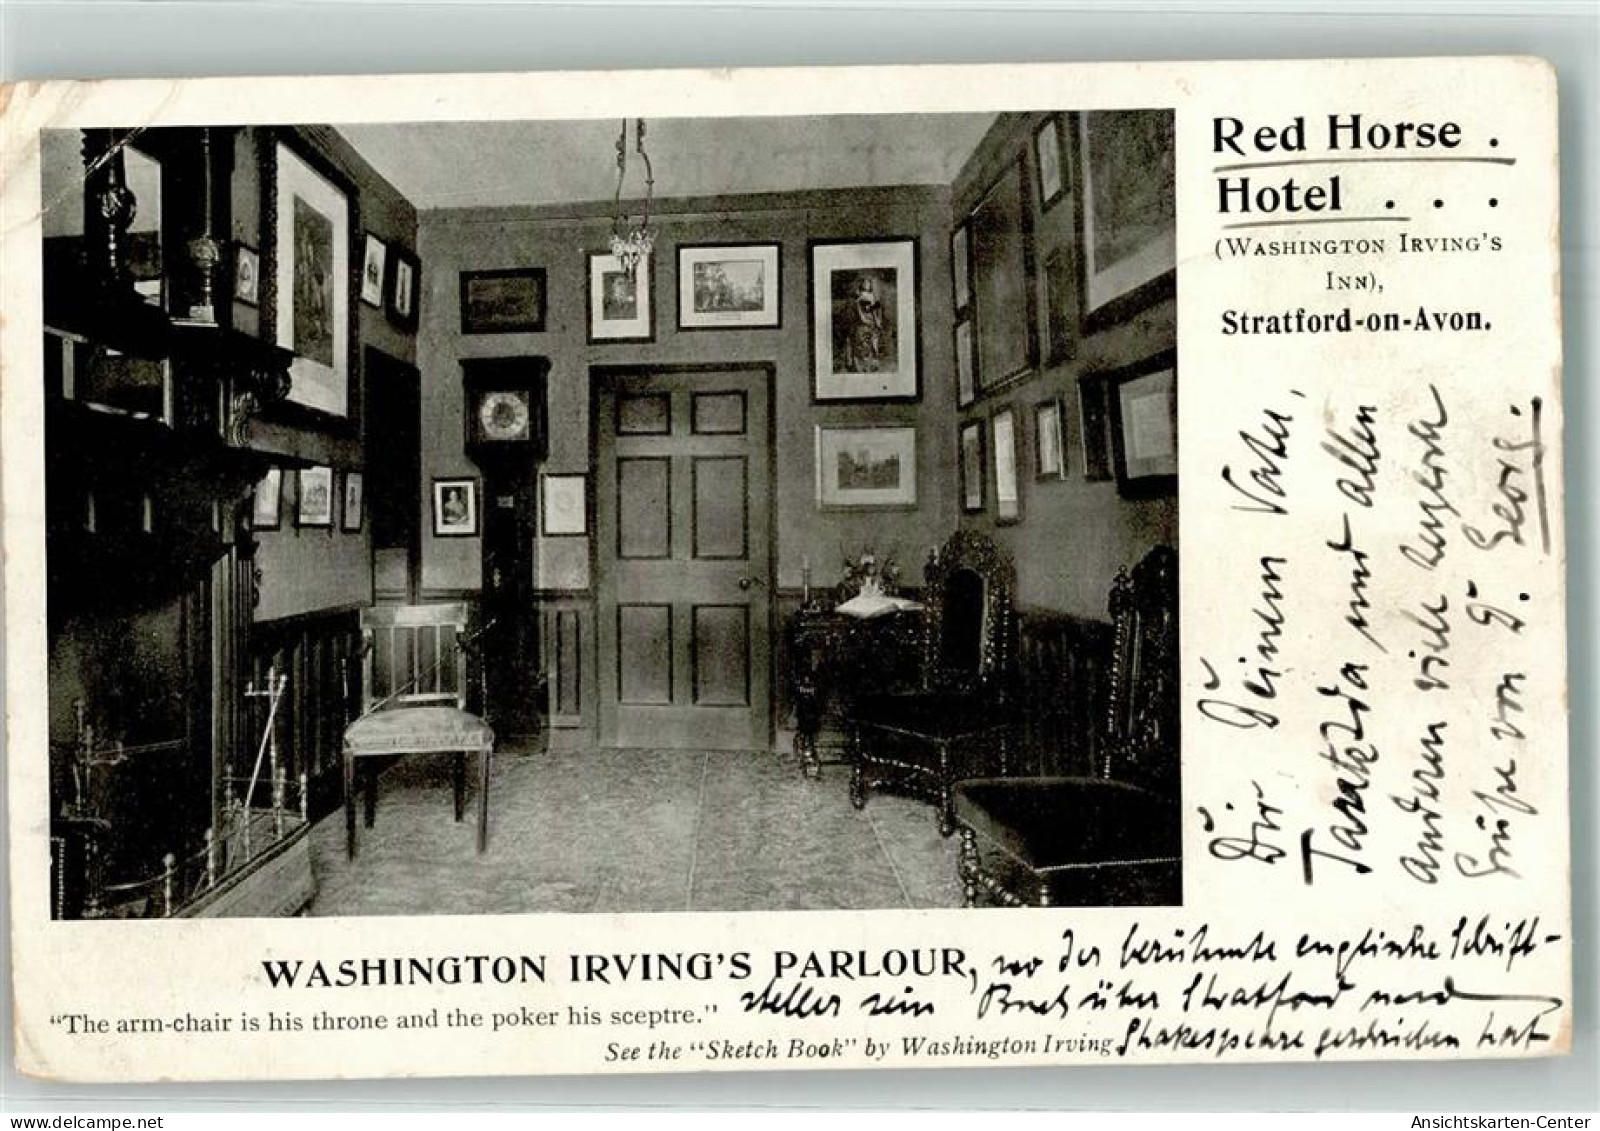 Red Horse .
Hotel . . .
(Washington Irving's
Inn),
Stratford-on-Avon.
Dir, Deinem Vater,
und allen
anderen viele herzliche
Grüße von D. Georg.
WASHINGTON IRVING'S PARLOUR, wo der berühmte englische Schrift-
"The arm-chair is his throne and the poker his sceptre." steller sein Buch über Stratford und
See the "Sketch Book" by Washington Irving Shakespeare geschrieben hat
delcampe.net
Ansichtskarten-Center